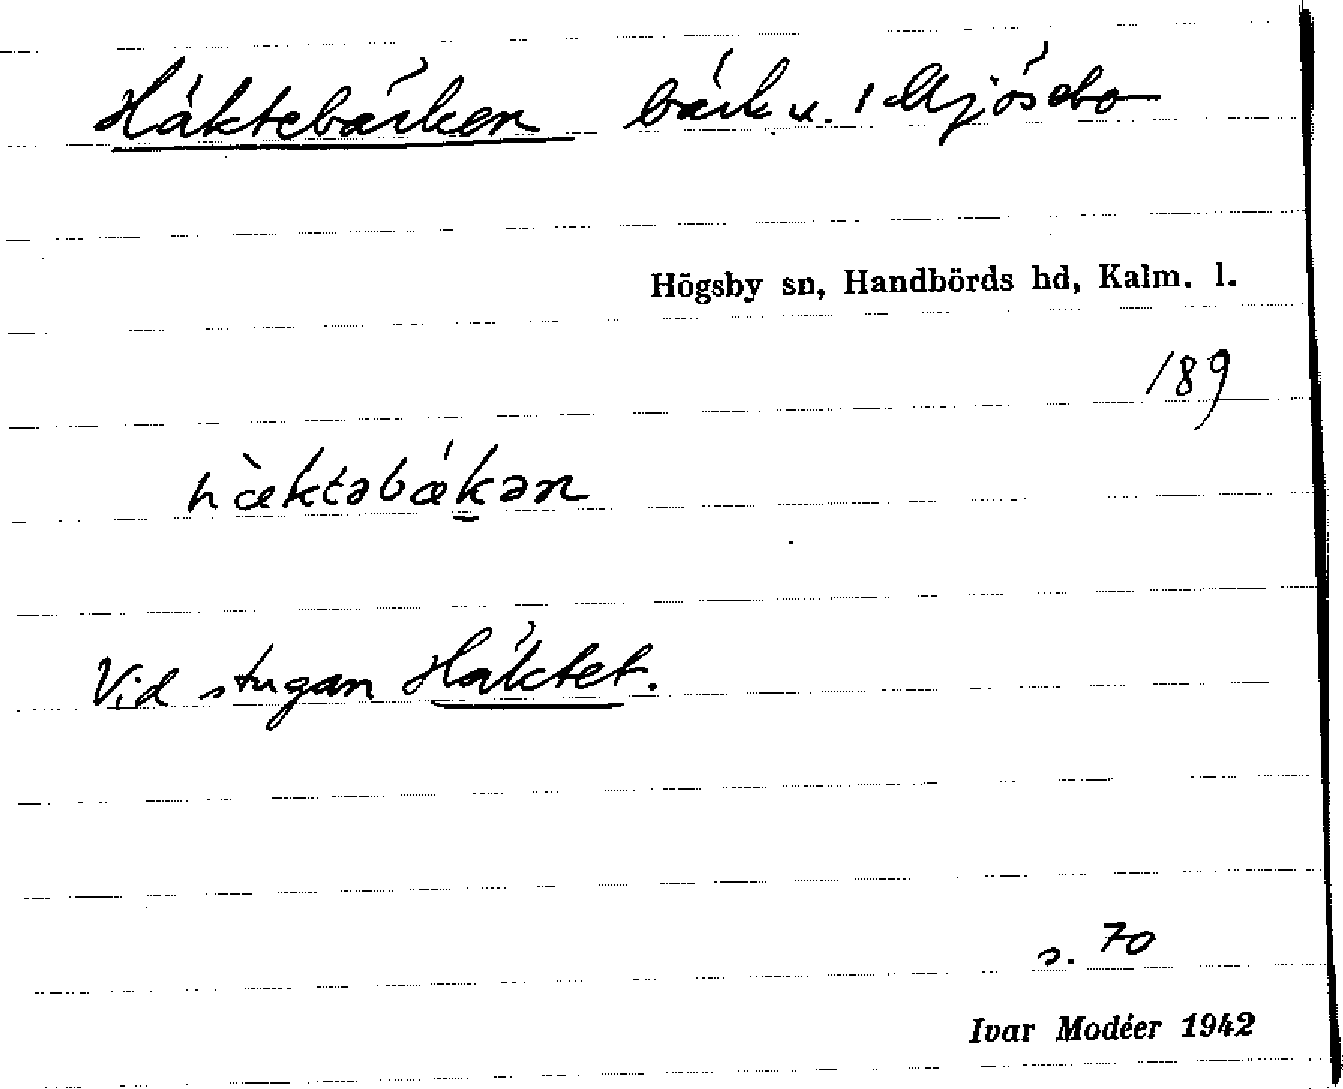 Häktebäcken bäck u. Mjösebo
Högsby sn, Handbörds hd, Kalm. l.
189
hæ̀ktəbǽḵən
Vid stugan Häktet.
s. 70
Ivar Modéer 1942